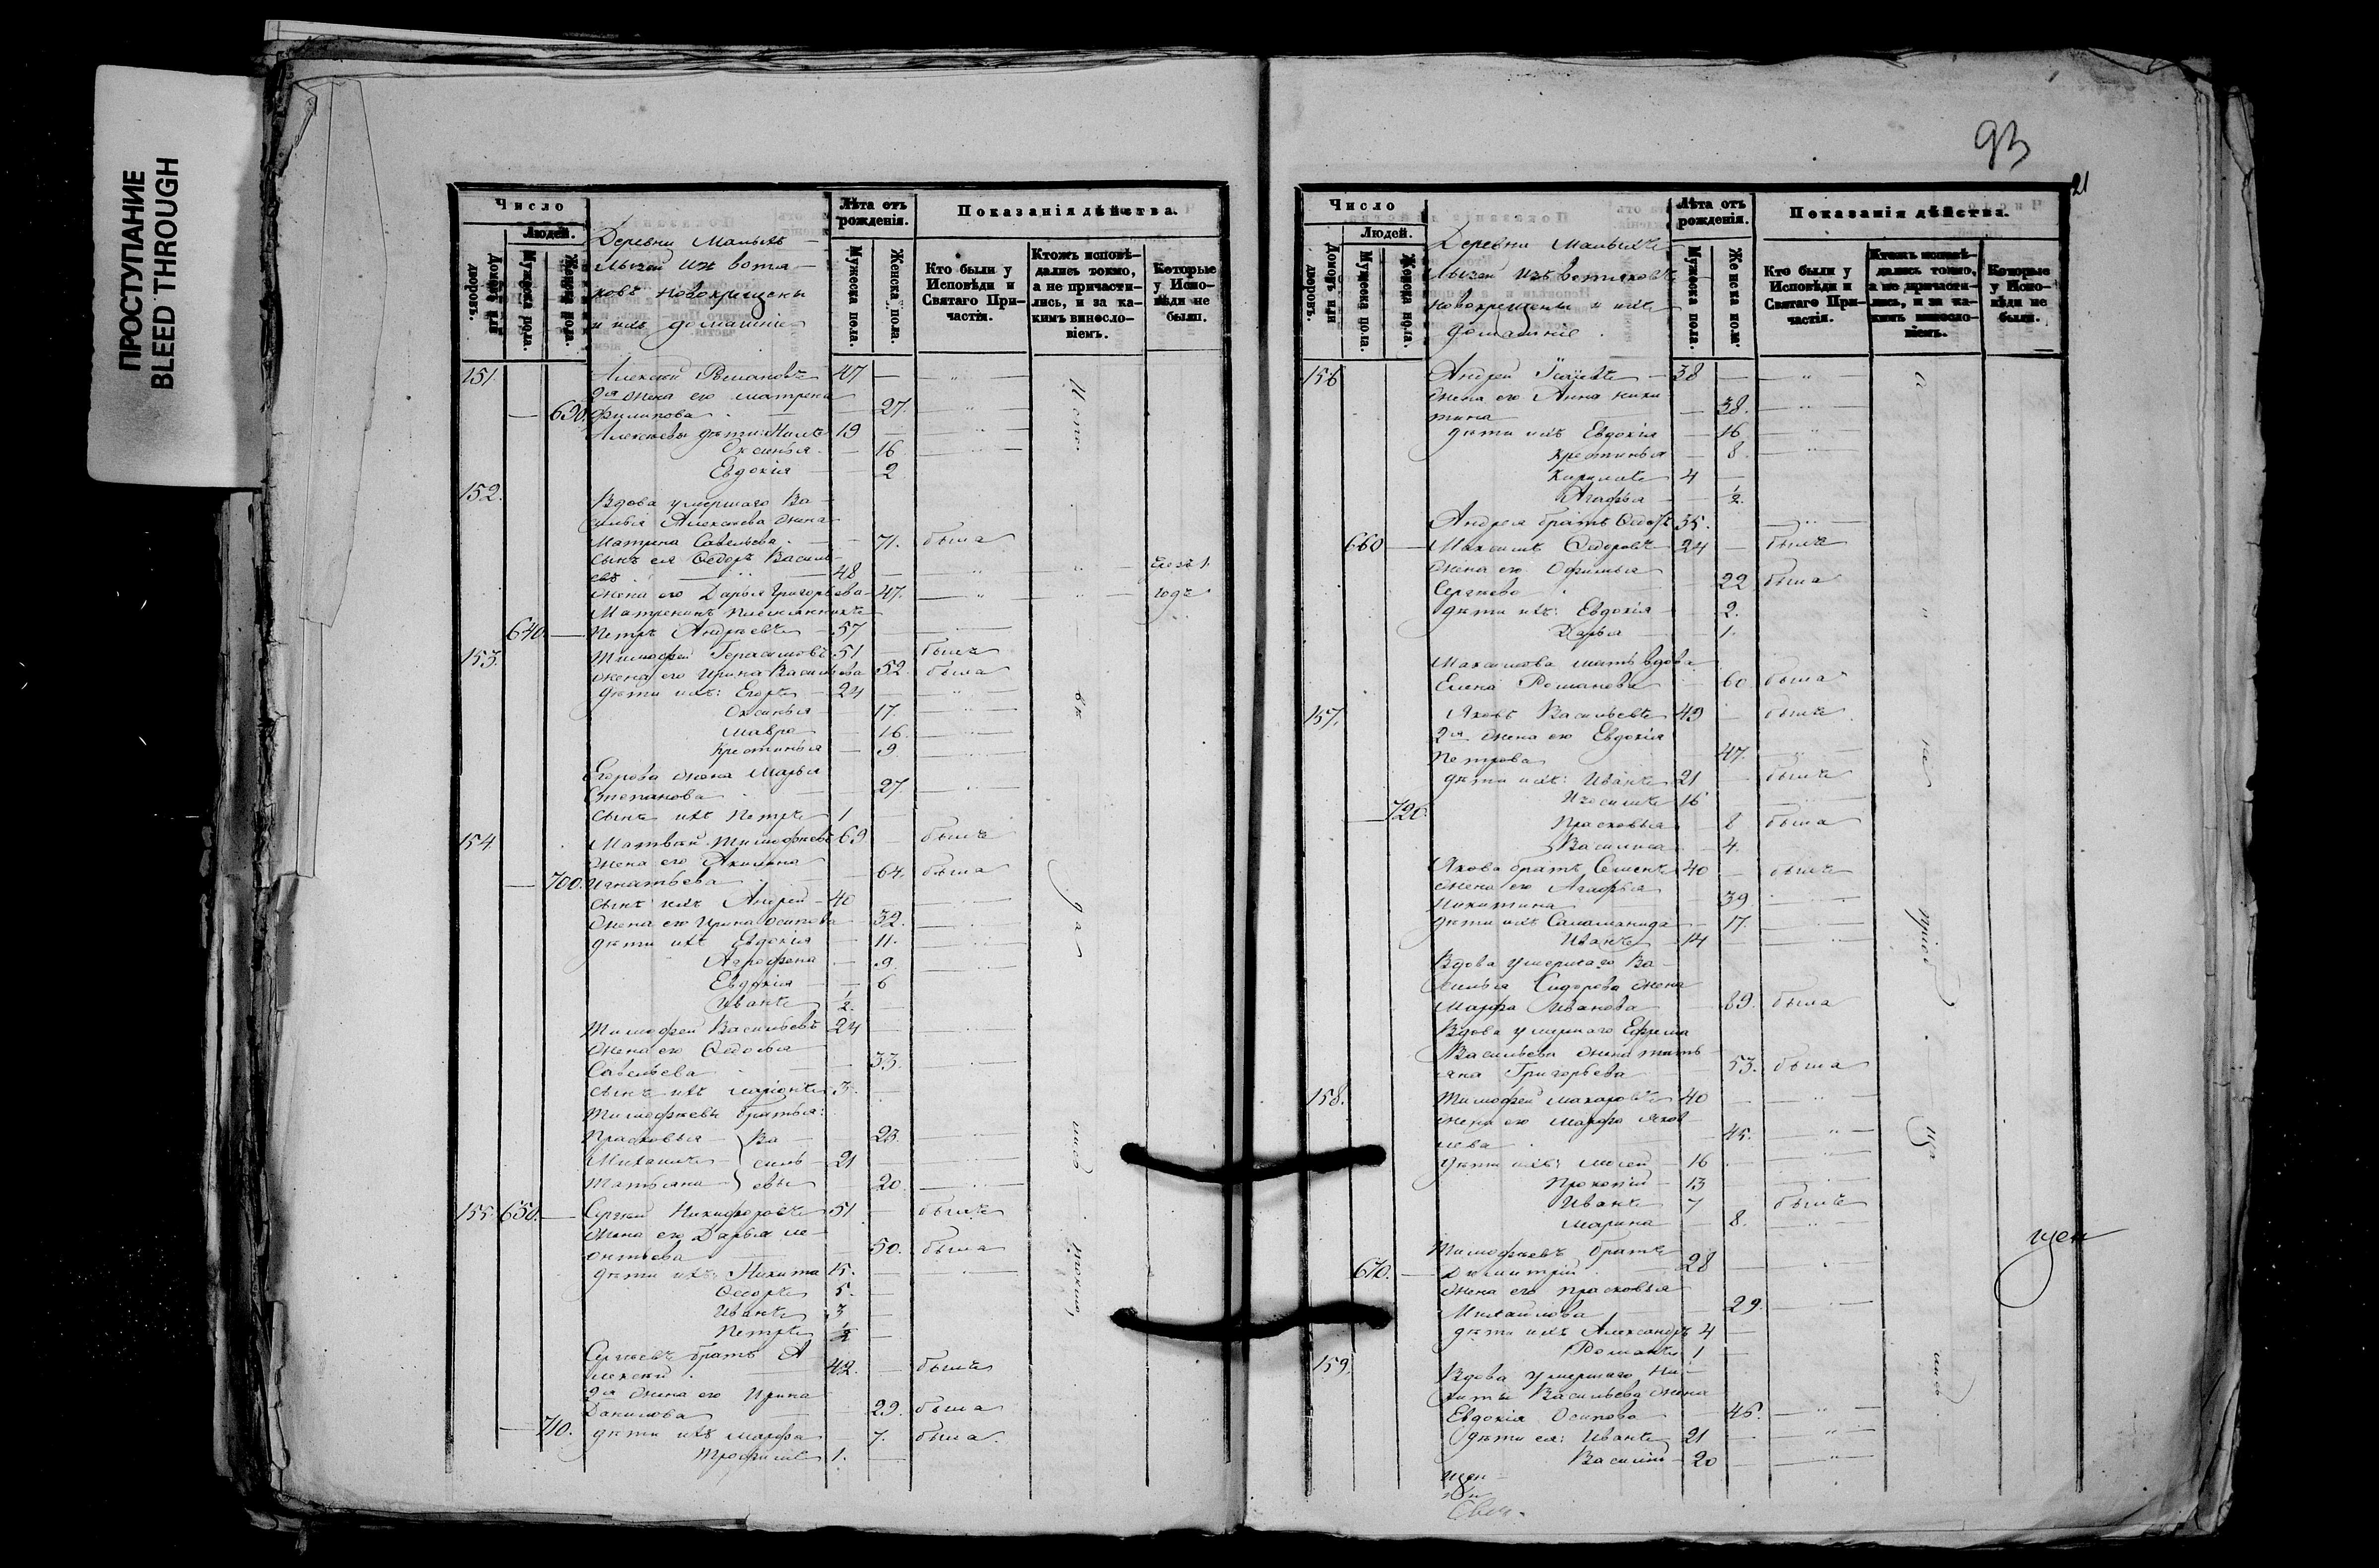 ПРОСТУПАНИЕ
BLEED THROUGH
93
21
Число
Людей.
Домовъ или дворовъ.
Мужеска пола.
Женска пола.
Лѣта отъ рожденія.
Мужеска пола.
Женска пола.
Показанія дѣйства.
Кто были у Исповѣди и Святаго Причастія.
Ктожъ исповѣдались токмо, а не причастились, и за какимъ винословіемъ.
Которые у Исповѣди не были.
Деревни
изъ вотя-
ковъ новокрещены
и ихъ домашніе
151. Алексей Романовъ 47 —
2я жена его Матрена
690. Филипова — 27.
Алексеевы дѣти: 19 —
Оксинья — 16
Евдокія — 2
152. Вдова умершаго Ва-
силья Алексеева жена
Матрена Савельева — 71. была
сынъ ея Ѳедоръ Василь-
евъ — 48
жена его Дарья Григорьева — 47. годъ
Матренинъ племянникъ
640. Петръ Андреевъ 57 —
153. Тимофей Герасимовъ 51 — былъ
жена его Ирина Васильева 52. была
дѣти ихъ: Егоръ 24
Оксинья 17.
Мавра — 16.
Крестинья — 9
Егорова жена Марья
Степанова — 27
сынъ ихъ Петръ 1
154. Матвей Тимофеевъ 69 — былъ
жена его Акилина
700. Игнатьева — 64. была
сынъ ихъ Андрей 40
жена его Ирина Осипова 32.
дѣти ихъ Евдокія — 11.
Агрофена — 9.
Евдокія — 6
Иванъ ½ —
Тимофей Васильевъ 24 —
жена его Ѳедосья
Савельева — 33.
сынъ ихъ 3 —
Тимофеевы братья:
Прасковья Ва — 23.
Михаилъ силь 21 —
Татьяна евы 20.
155. 650. Сергей Никифоровъ 51 — былъ
жена его Дарья Ле-
онтьева — 50. была
дѣти ихъ: Никита 15. —
Ѳедоръ 5. —
Иванъ 3 —
Петръ ½ —
Сергеевъ братъ А-
лексей 42. — былъ
2я жена его Ирина
Данилова — 29. была
710. дѣти ихъ Марфа — 7. была
Трофимъ 1. —
Число
Людей.
Домовъ или дворовъ.
Мужеска пола.
Женска пола.
Лѣта отъ рожденія.
Мужеска пола.
Женска пола.
Показанія дѣйства.
Кто были у Исповѣди и Святаго Причастія.
Ктожъ исповѣдались токмо, а не причастились, и за какимъ винословіемъ.
Которые у Исповѣди не были.
Деревни
изъ вотяковъ
новокрещены и ихъ
домашніе.
156 Андрей 38 —
жена его Анна Ники-
тина — 38.
дѣти ихъ Евдокія — 16
Крестинья — 8
4 —
Агафья — ½.
Андрея братъ 35.
660 Максимъ Ѳедоровъ 24 — былъ
жена его Офимья
Сергеева 22 была
дѣти ихъ: Евдокія 2.
Дарья 1.
Максимова мать вдова
Елена Романова 60 была
157. Яковъ Васильевъ 49 — былъ
2я жена его Евдокія
Петрова 47.
дѣти ихъ: Иванъ 21 былъ
16
720. Прасковья — 8 была
Василиса — 4.
Якова братъ Семенъ 40 — былъ
жена его Агафья
Никитина — 39.
дѣти ихъ Саламанида — 17.
Иванъ 14 —
Вдова умершаго Ва-
силья Сидорова жена
Марфа Иванова 89. была
Вдова умершаго Ефрема
Васильева жена Тать-
яна Григорьева 53. была
158. Тимофей Макаровъ 40 —
жена его Марфа Яков-
лева — 45.
дѣти ихъ: 16
Прокопій 13
Иванъ 7 былъ
Марина — 8.
Тимофеевъ братъ
670. Димитрій 28 —
жена его Прасковья
Михайлова — 29.
дѣти ихъ Александръ 4 —
Романъ 1 —
159. Вдова умершаго Ни-
киты Васильева жена
Евдокія Осипова — 45.
дѣти ея: Иванъ 21 —
Василій 20 —
щен